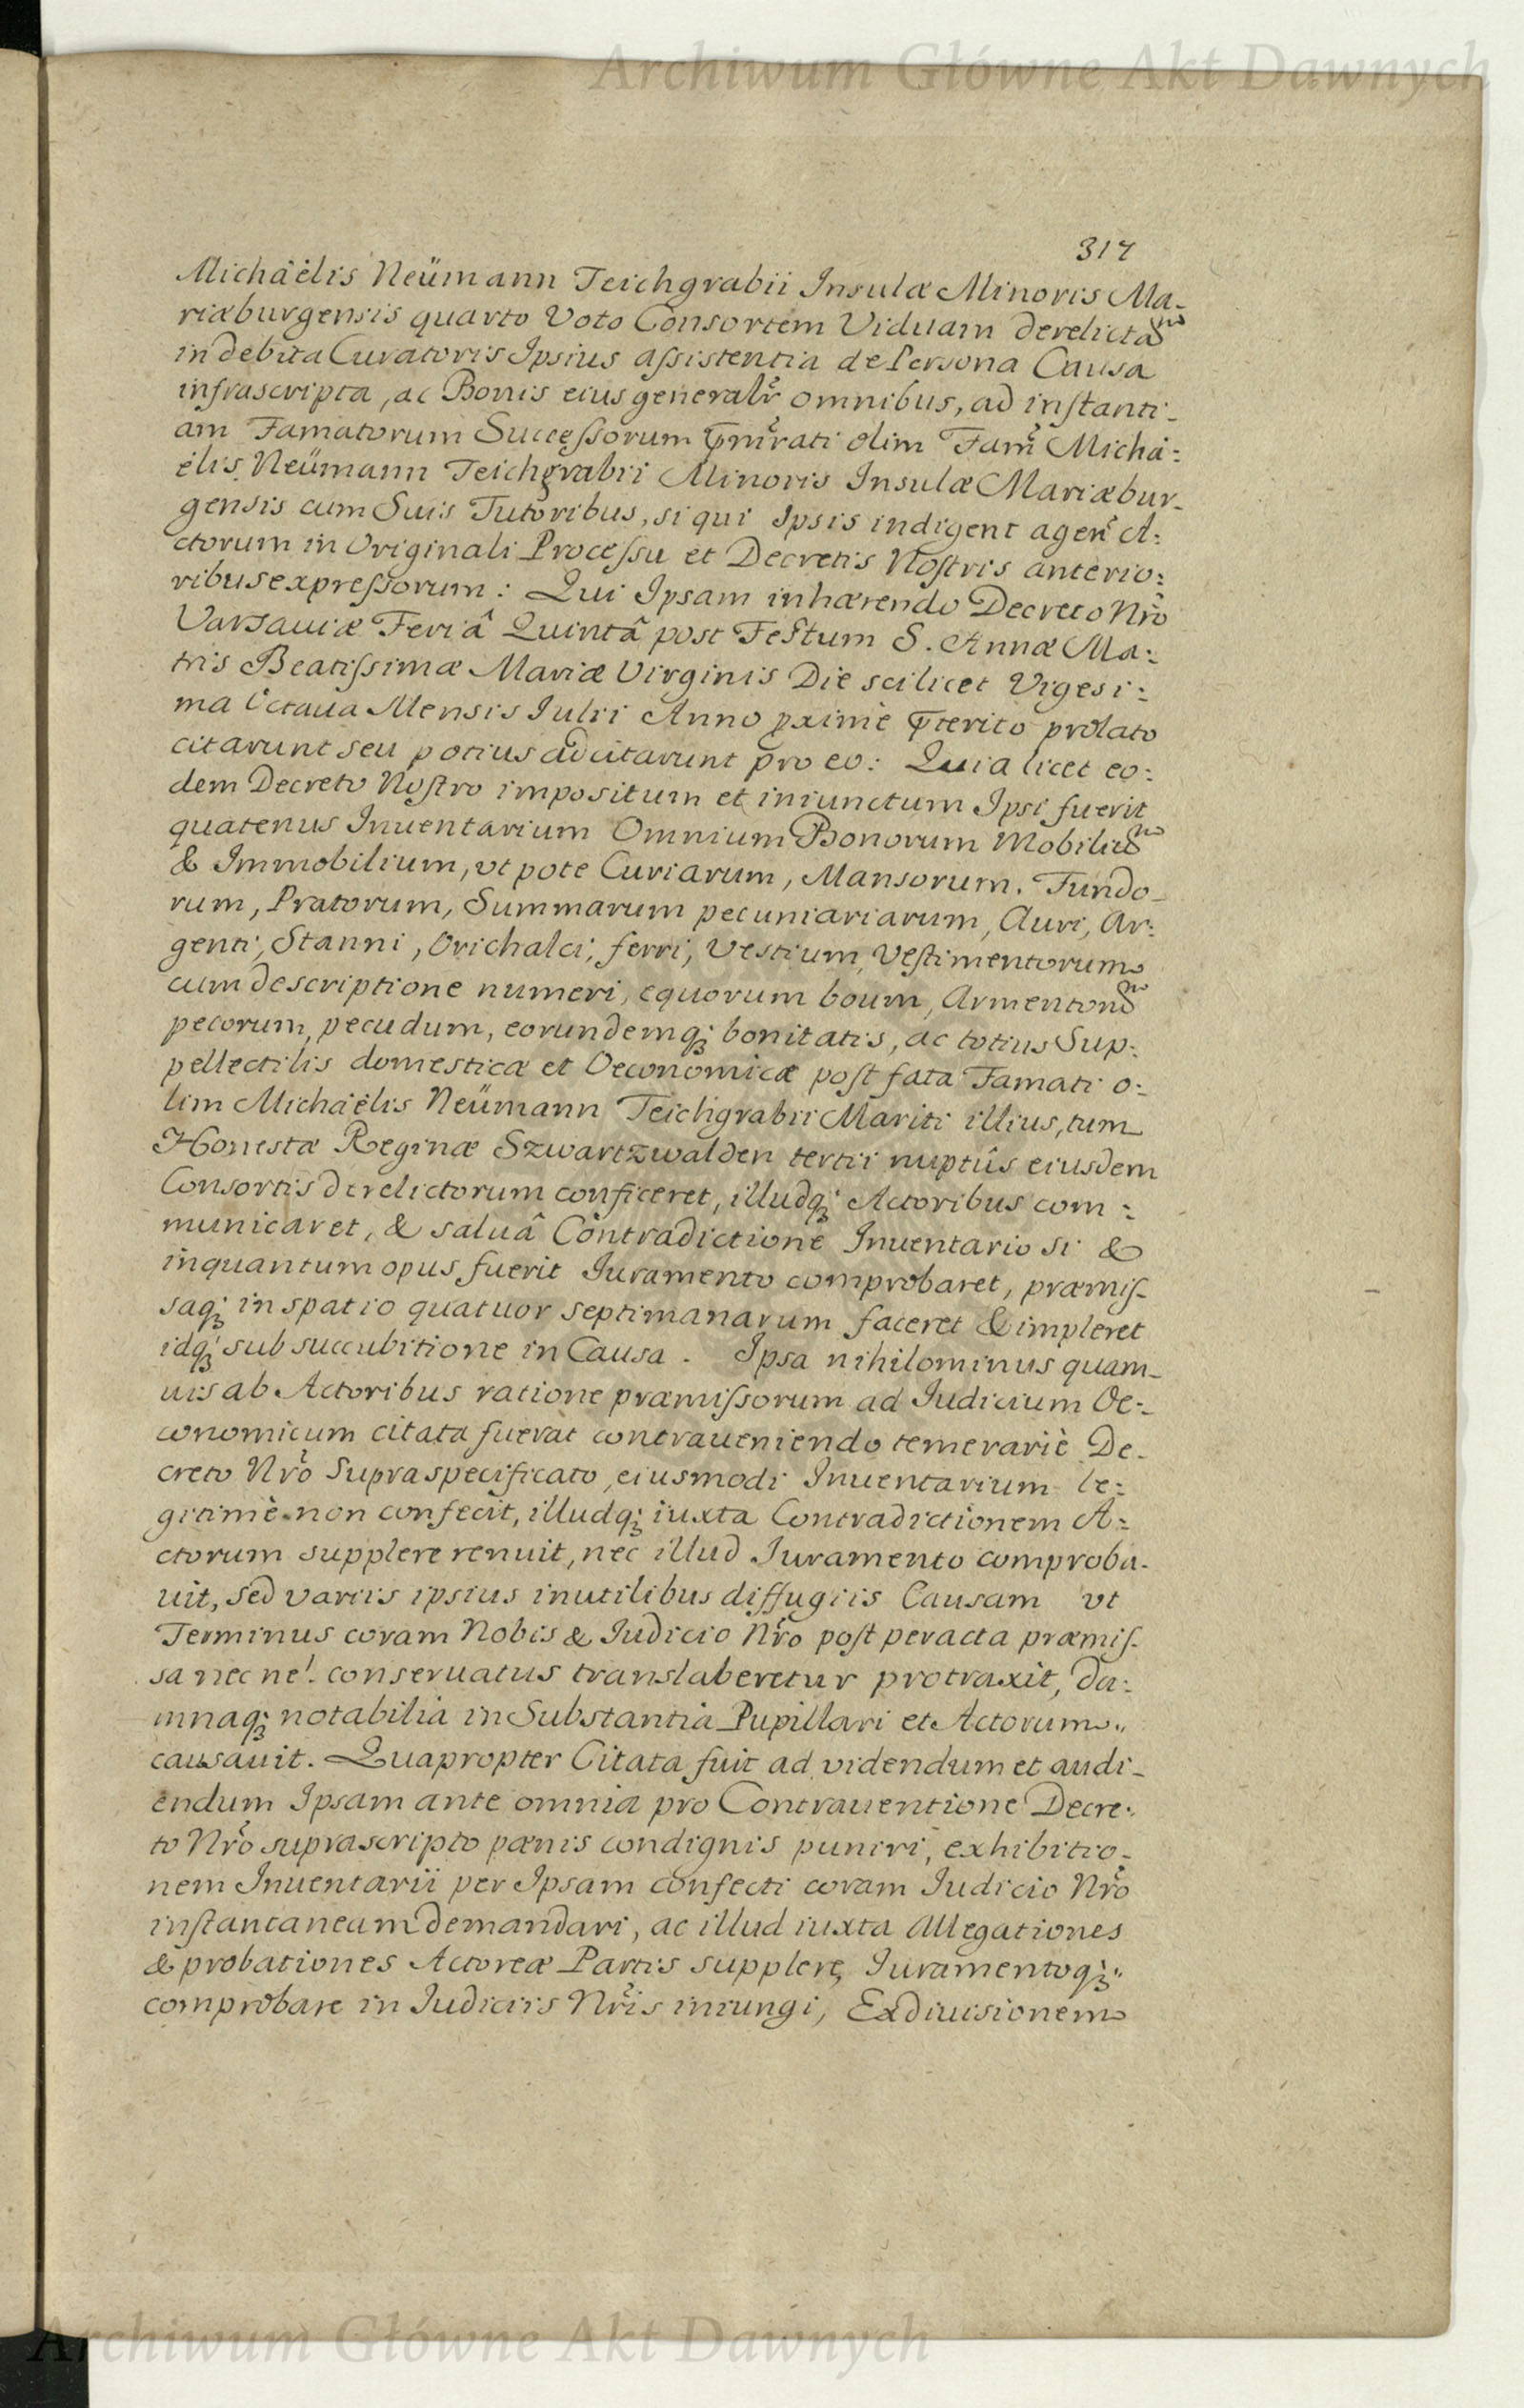 Archiwum Główne Akt Dawnych
317
Michäelis Neümann Teichgrabii Insulæ Minoris Ma-
riæburgensis quarto Voto Consortem Viduam derelictam
in debita Curatoris Ipsius assistentia de Persona Causa
infrascripta, ac Bonis eius generalr omnibus, ad instanti-
am Famatorum Successorum p̄nr̃ati olim Fam̃ Michä:
elis Neümann Teichgrabii Minoris Insulæ Mariæbur-
gensis cum Suis Tutoribus, si qui Ipsis indigent agen̄ A:
ctorum in Originali Processu et Decretis Nostris anterio:
ribus expressorum: Qui Ipsam inhærendo Decreto Nr̃o
Varsauiæ Feriâ Quintâ post Festum S. Annæ Ma:
tris Beatissimæ Mariæ Virginis Die scilicet Vigesi:
ma Octaua Mensis Iulii Anno pximè p̄terito prolato
citarunt seu potius adcitarunt pro eo: Quia licet eo:
dem Decreto Nostro impositum et iniunctum Ipsi fuerit
quatenus Inuentarium Omnium Bonorum Mobilium
& Immobilium, vt pote Curiarum, Mansorum. Fundo-
rum, Pratorum, Summarum pecuniariarum, Auri, Ar:
genti, Stanni, Orichalci, ferri, Vestium, Vestimentorum
cum descriptione numeri, equorum boum, Armentorum
pecorum, pecudum, eorundemq; bonitatis, ac totius Sup:
pellectilis domesticæ et Oeconomicæ post fata Famati o:
lim Michäelis Neümann Teichgrabii Mariti illius, tum
Honestæ Reginæ Szwartzwalden tertii nuptûs eiusdem
Consortis derelictorum conficeret, illudq; Actoribus com:
municaret, & saluâ Contradictione Inuentario si &
inquantum opus fuerit Iuramento comprobaret, præmis-
saq; in spatio quatuor septimanarum faceret & impleret
idq; sub succubitione in Causa. Ipsa nihilominus quam-
uis ab Actoribus ratione præmissorum ad Iudicium Oe:
conomicum citata fuerat contraueniendo temerariè De-
creto Nr̃o Supraspecificato, eiusmodi Inuentarium le:
gitimè non confecit, illudq; iuxta Contradictionem A:
ctorum supplere renuit, nec illud Iuramento comproba-
uit, sed variis ipsius inutilibus diffugiis Causam vt
Terminus coram Nobis & Iudicio Nr̃o post peracta præmis-
sa nec ne! conseruatus translaberetur protraxit, da:
mnaq; notabilia in Substantia Pupillari et Actorum
causauit. Quapropter Citata fuit ad videndum et audi-
endum Ipsam ante omnia pro Contrauentione Decre:
to Nr̃o suprascripto pænis condignis puniri, exhibitio-
nem Inuentarii per Ipsam confecti coram Iudicio Nr̃o
instantaneam demandari, ac illud iuxta Allegationes
& probationes Actoreæ Partis supplere, Iuramentoq;
comprobare in Iudiciis Nr̃is iniungi, Exdiuisionem
Archiwum Główne Akt Dawnych